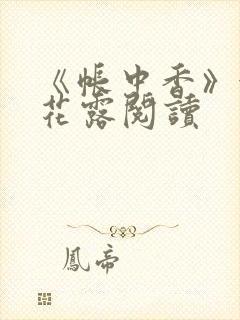 《帳中香》
花露閱讀
鳳帝